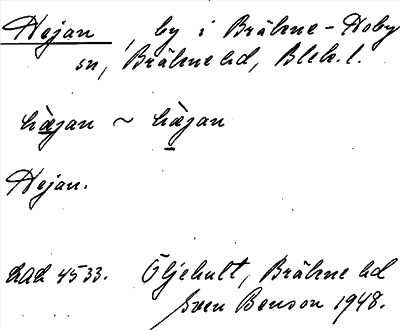 Hejan, by i Bräkne-Hoby
sn, Bräkne hd, Blek. l.
hæ̀jan ~ hæ̀jan
Hejan.
Lad 4533. Öljehult, Bräkne hd
Sven Benson 1948.